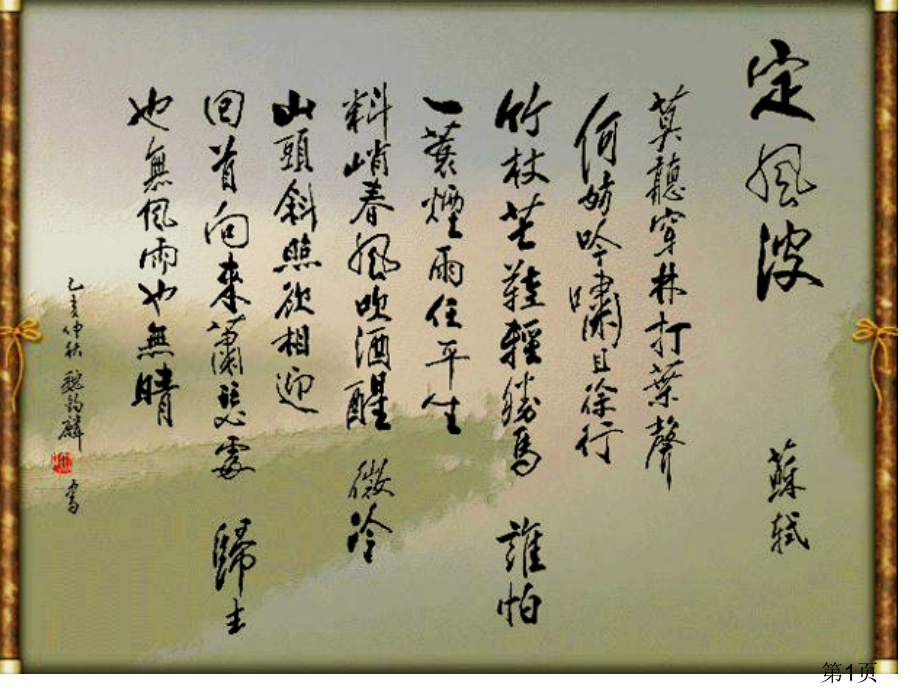 定風波 蘇軾
莫聽穿林打葉聲
何妨吟嘯且徐行
竹杖芒鞋輕勝馬 誰怕
一蓑煙雨任平生
料峭春風吹酒醒 微冷
山頭斜照欲相迎
回首向來蕭瑟處 歸去
也無風雨也無晴
乙亥仲秋 書
第1页